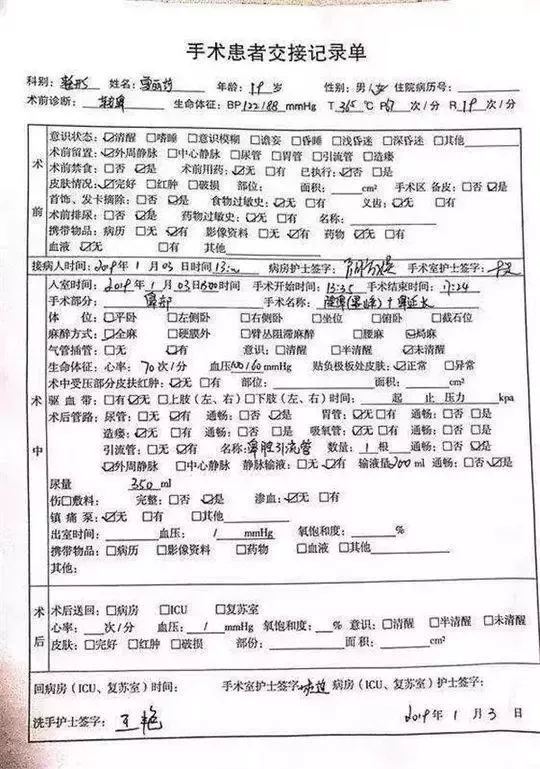 手术患者交接记录单
科别：整形 姓名： 年龄：19岁 性别：男/女 住院病历号：
术前诊断： 生命体征：BP 122/88 mmHg T 365 ℃ P 次/分 R 19 次/分
术前
意识状态：☑清醒 □嗜睡 □意识模糊 □谵妄 □昏睡 □浅昏迷 □深昏迷 □其他
术前留置：☑外周静脉 □中心静脉 □尿管 □胃管 □引流管 □造瘘
术前禁食：□否 ☑是 术前用药：☑无 □有 已执行：☑否 □是
皮肤情况：☑完好 □红肿 □破损 部位： 面积： cm² 手术区 备皮：□否 ☑是
首饰、发卡摘除：□否 ☑是 食物过敏史：☑无 □有 义齿：☑无 □有
术前排尿：□否 ☑是 药物过敏史：☑无 □有 名称：
携带物品：病历 □无 ☑有 影像资料 □无 ☑有 药物 ☑无 □有
血液 ☑无 □有 其他
接病人时间：2019年1月03日时间13: 病房护士签字： 手术室护士签字：
术中
入室时间：2019年1月03日1300时间 手术开始时间：13:35 手术结束时间：17:24
手术部分：鼻部 手术名称：
体 位：☑平卧 □左侧卧 □右侧卧 □坐位 □俯卧 □截石位
麻醉方式：☑全麻 □硬膜外 □臂丛阻滞麻醉 □腰麻 ☑局麻
气管插管：□无 ☑有 意识：□清醒 □半清醒 ☑未清醒
生命体征：心率：70次/分 血压100/60mmHg 贴负极板处皮肤：☑正常 □异常
术中受压部分皮肤红肿：☑无 □有 部位： 面积： cm²
驱 血 带：□有☑无 □上肢（左、右）□下肢（左、右）时间： 起 止 压力 kpa
术后管路：尿管：□无 ☑有 通畅：□否 ☑是 胃管：☑无□有 通畅：□否 □是
造瘘：☑无 □有 通畅：□否 □是 吸氧管：☑无□有 通畅：□否 □是
引流管：□无 ☑有 名称：鼻腔引流管 数量：1 根 通畅：□否 ☑是
☑外周静脉 □中心静脉 静脉输液：□无 ☑有 输液量 ml 通畅：□否 ☑是
尿量 350 ml
伤口敷料： 完整：□否 ☑是 渗血：☑无 □有
镇 痛 泵：☑无 □有 □其他
出室时间： 血压： / mmHg 氧饱和度： %
携带物品：□病历 □影像资料 □药物 □血液 □其他
其他：
术后
术后送回：□病房 □ICU □复苏室
心率： 次/分 血压： / mmHg 氧饱和度： % 意识：□清醒 □半清醒 □未清醒
皮肤：□完好 □红肿 □破损 部份： 面积： cm²
回病房（ICU、复苏室）时间： 手术室护士签字： 病房（ICU、复苏室）护士签字：
洗手护士签字：王艳 2019年1月3日